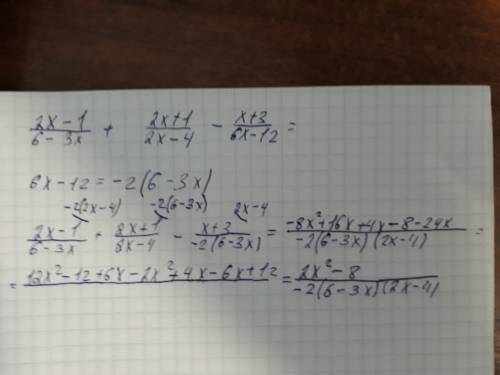 (2x-1)/(6-3x) + (2x+1)/(2x-4) - (x+3)/(6x-12) =
6x-12=-2(6-3x)
-2(2x-4) -2(6-3x) 2x-4
(2x-1)/(6-3x) + (2x+1)/(2x-4) - (x+3)/(-2(6-3x)) = (-8x²+16x+4x-8-24x)/(-2(6-3x)(2x-4)) =
= (12x²-12+6x-2x²+4x-6x+12)/ = (2x²-8)/(-2(6-3x)(2x-4))